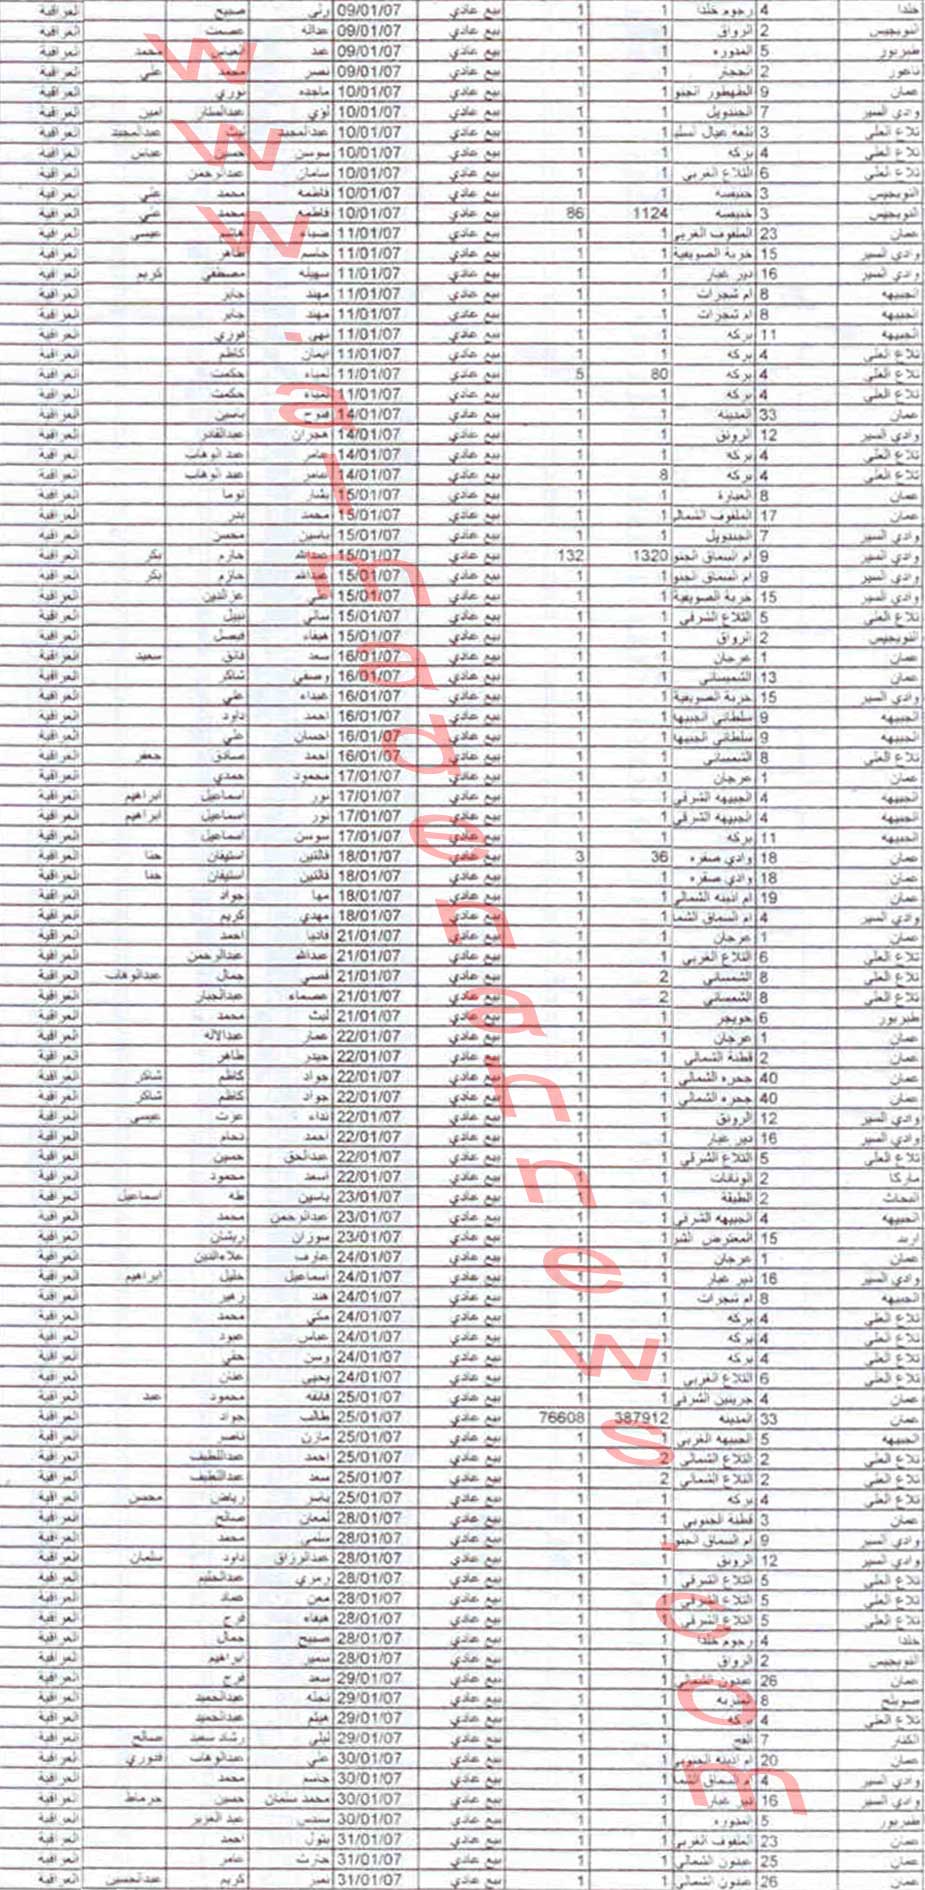 خلدا 4 رجوم خلدا 1 1 بيع عادي 09/01/07 صبيح العراقية
النويجيس 2 الرواق 1 1 بيع عادي 09/01/07 عصمت العراقية
طبربور 5 المدوره 1 1 بيع عادي 09/01/07 عبد محمد العراقية
ناعور 2 1 1 بيع عادي 09/01/07 محمد علي العراقية
عمان 9 الظهطور الجنو 1 1 بيع عادي 10/01/07 ماجده نوري العراقية
وادي السير 7 الجندويل 1 1 بيع عادي 10/01/07 لؤي عبدالستار امين العراقية
تلاع العلي 3 1 1 بيع عادي 10/01/07 عبدالمجيد ليث عبدالمجيد العراقية
تلاع العلي 4 بركه 1 1 بيع عادي 10/01/07 سوسن حسين عباس العراقية
تلاع العلي 6 التلاع الغربي 1 1 بيع عادي 10/01/07 سامان عبدالرحمن العراقية
النويجيس 3 1 1 بيع عادي 10/01/07 فاطمه محمد علي العراقية
النويجيس 3 1124 86 بيع عادي 10/01/07 فاطمه محمد علي العراقية
عمان 23 الملفوف الغربي 1 1 بيع عادي 11/01/07 ضياء هاشم عيسى العراقية
وادي السير 15 خربة الصويفية 1 1 بيع عادي 11/01/07 جاسم طاهر العراقية
وادي السير 16 دير غبار 1 1 بيع عادي 11/01/07 سهيله مصطفى كريم العراقية
الجبيهه 8 ام شجرات 1 1 بيع عادي 11/01/07 مهند جابر العراقية
الجبيهه 8 ام شجرات 1 1 بيع عادي 11/01/07 مهند جابر العراقية
الجبيهه 11 بركه 1 1 بيع عادي 11/01/07 نهى فوزي العراقية
تلاع العلي 4 بركه 1 1 بيع عادي 11/01/07 ايمان كاظم العراقية
تلاع العلي 4 بركه 80 5 بيع عادي 11/01/07 لمياء حكمت العراقية
تلاع العلي 4 بركه 1 1 بيع عادي 11/01/07 لمياء حكمت العراقية
عمان 33 المدينه 1 1 بيع عادي 14/01/07 ياسين العراقية
وادي السير 12 الرونق 1 1 بيع عادي 14/01/07 هجران عبدالقادر العراقية
تلاع العلي 4 بركه 1 1 بيع عادي 14/01/07 عبد الوهاب العراقية
تلاع العلي 4 بركه 8 1 بيع عادي 14/01/07 عبد الوهاب العراقية
عمان 8 العبارة 1 1 بيع عادي 15/01/07 بشار توما العراقية
عمان 17 الملفوف الشمالي 1 1 بيع عادي 15/01/07 محمد بدر العراقية
وادي السير 7 الجندويل 1 1 بيع عادي 15/01/07 ياسين محسن العراقية
وادي السير 9 ام السماق الجنو 1320 132 بيع عادي 15/01/07 عبدالله حازم بكر العراقية
وادي السير 9 ام السماق الجنو 1 1 بيع عادي 15/01/07 عبدالله حازم بكر العراقية
وادي السير 15 خربة الصويفية 1 1 بيع عادي 15/01/07 علي عزالدين العراقية
تلاع العلي 5 التلاع الشرقي 1 1 بيع عادي 15/01/07 سالي نبيل العراقية
النويجيس 2 الرواق 1 1 بيع عادي 15/01/07 هيفاء فيصل العراقية
عمان 1 عرجان 1 1 بيع عادي 16/01/07 سعد فائق سعيد العراقية
عمان 13 الشميساني 1 1 بيع عادي 16/01/07 وصفي شاكر العراقية
وادي السير 15 خربة الصويفية 1 1 بيع عادي 16/01/07 غيداء علي العراقية
الجبيهه 9 سلطاني الجبيها 1 1 بيع عادي 16/01/07 احمد داود العراقية
الجبيهه 9 سلطاني الجبيها 1 1 بيع عادي 16/01/07 احسان علي العراقية
تلاع العلي 8 الشمساني 1 1 بيع عادي 16/01/07 احمد صادق جعفر العراقية
عمان 1 عرجان 1 1 بيع عادي 17/01/07 محمود حمدي العراقية
الجبيهه 4 الجبيهه الشرقي 1 1 بيع عادي 17/01/07 نور اسماعيل ابراهيم العراقية
الجبيهه 4 الجبيهه الشرقي 1 1 بيع عادي 17/01/07 نور اسماعيل ابراهيم العراقية
الجبيهه 11 بركه 1 1 بيع عادي 17/01/07 سوسن اسماعيل العراقية
عمان 18 وادي صقره 36 3 بيع عادي 18/01/07 فالنتين استيفان حنا العراقية
عمان 18 وادي صقره 1 1 بيع عادي 18/01/07 فالنتين استيفان حنا العراقية
عمان 19 ام اذينه الشمالي 1 1 بيع عادي 18/01/07 مها جواد العراقية
وادي السير 4 ام السماق الشما 1 1 بيع عادي 18/01/07 مهدي كريم العراقية
عمان 1 عرجان 1 1 بيع عادي 21/01/07 احمد العراقية
تلاع العلي 6 التلاع الغربي 1 1 بيع عادي 21/01/07 عبدالله عبدالرحمن العراقية
تلاع العلي 8 الشمساني 2 1 بيع عادي 21/01/07 قصي جمال عبدالوهاب العراقية
تلاع العلي 8 الشمساني 2 1 بيع عادي 21/01/07 عصماء عبدالجبار العراقية
طبربور 6 حويجر 1 1 بيع عادي 21/01/07 ليث محمد العراقية
عمان 1 عرجان 1 1 بيع عادي 22/01/07 عمار عبدالاله العراقية
عمان 2 قطنة الشمالي 1 1 بيع عادي 22/01/07 حيدر طاهر العراقية
عمان 40 جحره الشمالي 1 1 بيع عادي 22/01/07 جواد كاظم شاكر العراقية
عمان 40 جحره الشمالي 1 1 بيع عادي 22/01/07 جواد كاظم شاكر العراقية
وادي السير 12 الرونق 1 1 بيع عادي 22/01/07 نداء عزت عيسى العراقية
وادي السير 16 دير غبار 1 1 بيع عادي 22/01/07 احمد نجام العراقية
تلاع العلي 5 التلاع الشرقي 1 1 بيع عادي 22/01/07 عبدالحق حسين العراقية
ماركا 2 الونانات 1 1 بيع عادي 22/01/07 اسعد محمود العراقية
البحاث 2 الطبقة 1 1 بيع عادي 23/01/07 ياسين طه اسماعيل العراقية
الجبيهه 4 الجبيهه الشرقي 1 1 بيع عادي 23/01/07 عبدالرحمن محمد العراقية
اربد 15 المعترض الشر 1 1 بيع عادي 23/01/07 سوزان العراقية
عمان 1 عرجان 1 1 بيع عادي 24/01/07 عارف علاءالدين العراقية
وادي السير 16 دير غبار 1 1 بيع عادي 24/01/07 اسماعيل خليل ابراهيم العراقية
الجبيهه 8 ام شجرات 1 1 بيع عادي 24/01/07 هند زهير العراقية
تلاع العلي 4 بركه 1 1 بيع عادي 24/01/07 مكي محمد العراقية
تلاع العلي 4 بركه 1 1 بيع عادي 24/01/07 عباس عبود العراقية
تلاع العلي 4 بركه 1 1 بيع عادي 24/01/07 وسن حقي العراقية
تلاع العلي 6 التلاع الغربي 1 1 بيع عادي 24/01/07 يحيى العراقية
عمان 4 جرينين الشرقي 1 1 بيع عادي 25/01/07 فائقه محمود عبد العراقية
عمان 33 المدينه 387912 76608 بيع عادي 25/01/07 طالب جواد العراقية
الجبيهه 5 الجبيهه الغربي 1 1 بيع عادي 25/01/07 مازن ناصر العراقية
تلاع العلي 2 التلاع الشمالي 2 1 بيع عادي 25/01/07 احمد عبداللطيف العراقية
تلاع العلي 2 التلاع الشمالي 2 1 بيع عادي 25/01/07 سعد عبداللطيف العراقية
تلاع العلي 4 بركه 1 1 بيع عادي 25/01/07 ياسر رياض محسن العراقية
عمان 3 قطنة الجنوبي 1 1 بيع عادي 28/01/07 لمعان صالح العراقية
وادي السير 9 ام السماق الجنو 1 1 بيع عادي 28/01/07 سلمى محمد العراقية
وادي السير 12 الرونق 1 1 بيع عادي 28/01/07 عبدالرزاق داود سلمان العراقية
تلاع العلي 5 التلاع الشرقي 1 1 بيع عادي 28/01/07 رمزي عبدالحليم العراقية
تلاع العلي 5 التلاع الشرقي 1 1 بيع عادي 28/01/07 معن عماد العراقية
تلاع العلي 5 التلاع الشرقي 1 1 بيع عادي 28/01/07 هيفاء فرج العراقية
خلدا 4 رجوم خلدا 1 1 بيع عادي 28/01/07 صبيح جمال العراقية
النويجيس 2 الرواق 1 1 بيع عادي 28/01/07 سمير ابراهيم العراقية
عمان 26 عبدون الشمالي 1 1 بيع عادي 29/01/07 سعد فرج العراقية
صويلح 8 1 1 بيع عادي 29/01/07 نجله عبدالحميد العراقية
تلاع العلي 4 بركه 1 1 بيع عادي 29/01/07 هيثم عبدالحميد العراقية
الكفار 7 الفج 1 1 بيع عادي 29/01/07 ليلى رشاد سعيد صالح العراقية
عمان 20 ام اذينه الجنوبي 1 1 بيع عادي 30/01/07 علي عبدالوهاب العراقية
وادي السير 4 ام السماق الشما 1 1 بيع عادي 30/01/07 جاسم محمد العراقية
وادي السير 16 دير غبار 1 1 بيع عادي 30/01/07 محمد سلمان حسين العراقية
طبربور 5 المدوره 1 1 بيع عادي 30/01/07 سندس عبد العزيز العراقية
عمان 23 الملفوف الغربي 1 1 بيع عادي 31/01/07 بتول احمد العراقية
عمان 25 عبدون الشمالي 1 1 بيع عادي 31/01/07 حارث عامر العراقية
عمان 26 عبدون الشمالي 1 1 بيع عادي 31/01/07 نمير كريم عبدالحسين العراقية
www.almadenahnews.com